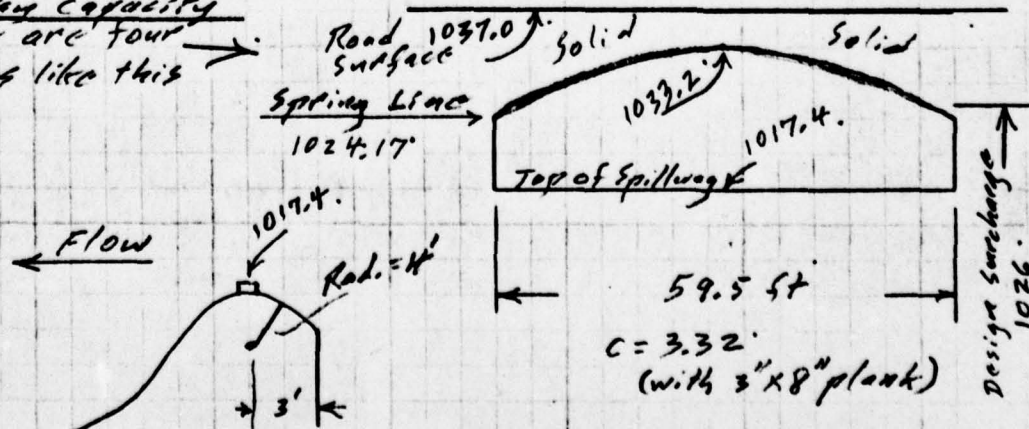 Capacity
are four
like this
Road 1037.0
Surface
Solid
Solid
Spring Line
1024.17'
1033.2.
1017.4.
Top of Spillway
Flow
1017.4.
Rad. = 4'
3'
59.5 ft
C = 3.32
(with 3" x 8" plank)
Design Surcharge
1026.